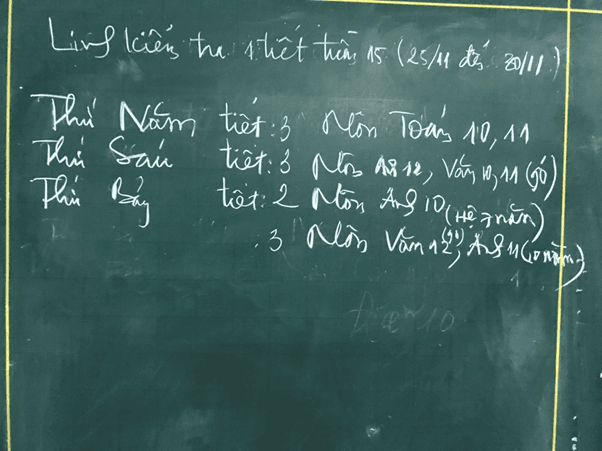 Lịch kiểm tra 1 tiết tuần 15 (25/11 đến 30/11)
Thứ Năm tiết: 3 Môn Toán 10, 11
Thứ Sáu tiết: 3 Môn Anh 12, Văn 10, 11 (90')
Thứ Bảy tiết: 2 Môn Anh 10 (Hệ 7 năm)
3 Môn Văn 12 (90'), Anh 11 (10 năm)